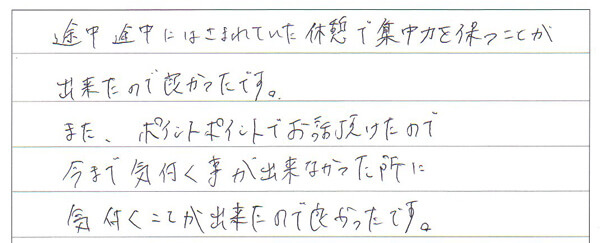 途中途中にはさまれていた休憩で集中力を保つことが
出来たので良かったです。
また、ポイントポイントでお話頂けたので
今まで気付く事が出来なかった所に
気付くことが出来たので良かったです。